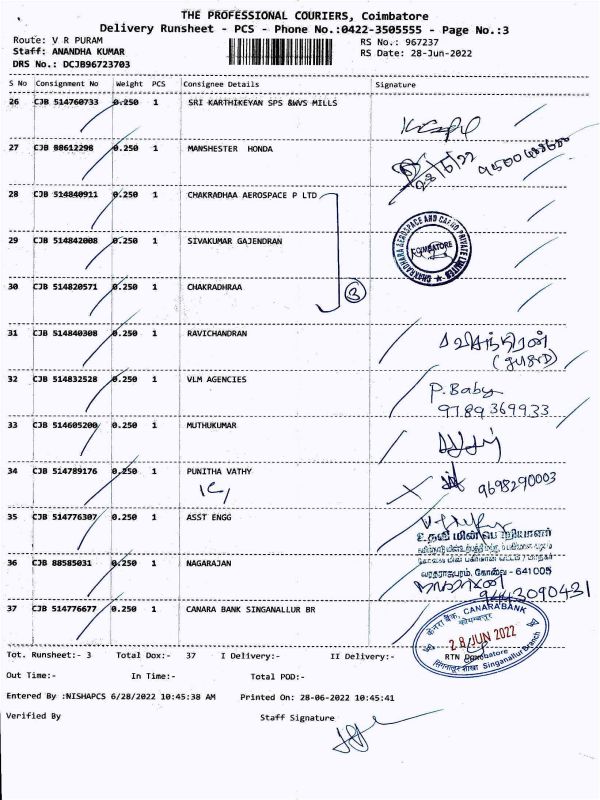 THE PROFESSIONAL COURIERS, Coimbatore
Delivery Runsheet - PCS - Phone No.:0422-3505555 - Page No.:3
Route: V R PURAM
RS No.: 967237
Staff: ANANDHA KUMAR
RS Date: 28-Jun-2022
DRS No.: DCJB96723703
S No Consignment No Weight PCS Consignee Details Signature
26 CJB 514760733 0.250 1 SRI KARTHIKEYAN SPS &WVS MILLS
27 CJB 88612298 0.250 1 MANSHESTER HONDA
28/6/22
28 CJB 514840911 0.250 1 CHAKRADHAA AEROSPACE P LTD
29 CJB 514842008 0.250 1 SIVAKUMAR GAJENDRAN
CHAKRADHARA AEROSPACE AND CARGO PRIVATE LIMITED
COIMBATORE
30 CJB 514820571 0.250 1 CHAKRADHRAA
3
31 CJB 514840308 0.250 1 RAVICHANDRAN
32 CJB 514832528 0.250 1 VLM AGENCIES
P. Baby
9789369933
33 CJB 514605200 0.250 1 MUTHUKUMAR
34 CJB 514789176 0.250 1 PUNITHA VATHY
9698290003
35 CJB 514776307 0.250 1 ASST ENGG
உதவி மின் பொறியாளர்
36 CJB 88585031 0.250 1 NAGARAJAN
வரதராஜபுரம், கோவை - 641005
9443090431
37 CJB 514776677 0.250 1 CANARA BANK SINGANALLUR BR
केनरा बैंक, CANARA BANK
कोयम्बत्तूर
28 JUN 2022
Coimbatore
Singanallur Branch
Tot. Runsheet:- 3 Total Dox:- 37 I Delivery:- II Delivery:- RTN Dox
Out Time:- In Time:- Total POD:-
Entered By :NISHAPCS 6/28/2022 10:45:38 AM Printed On: 28-06-2022 10:45:41
Verified By Staff Signature